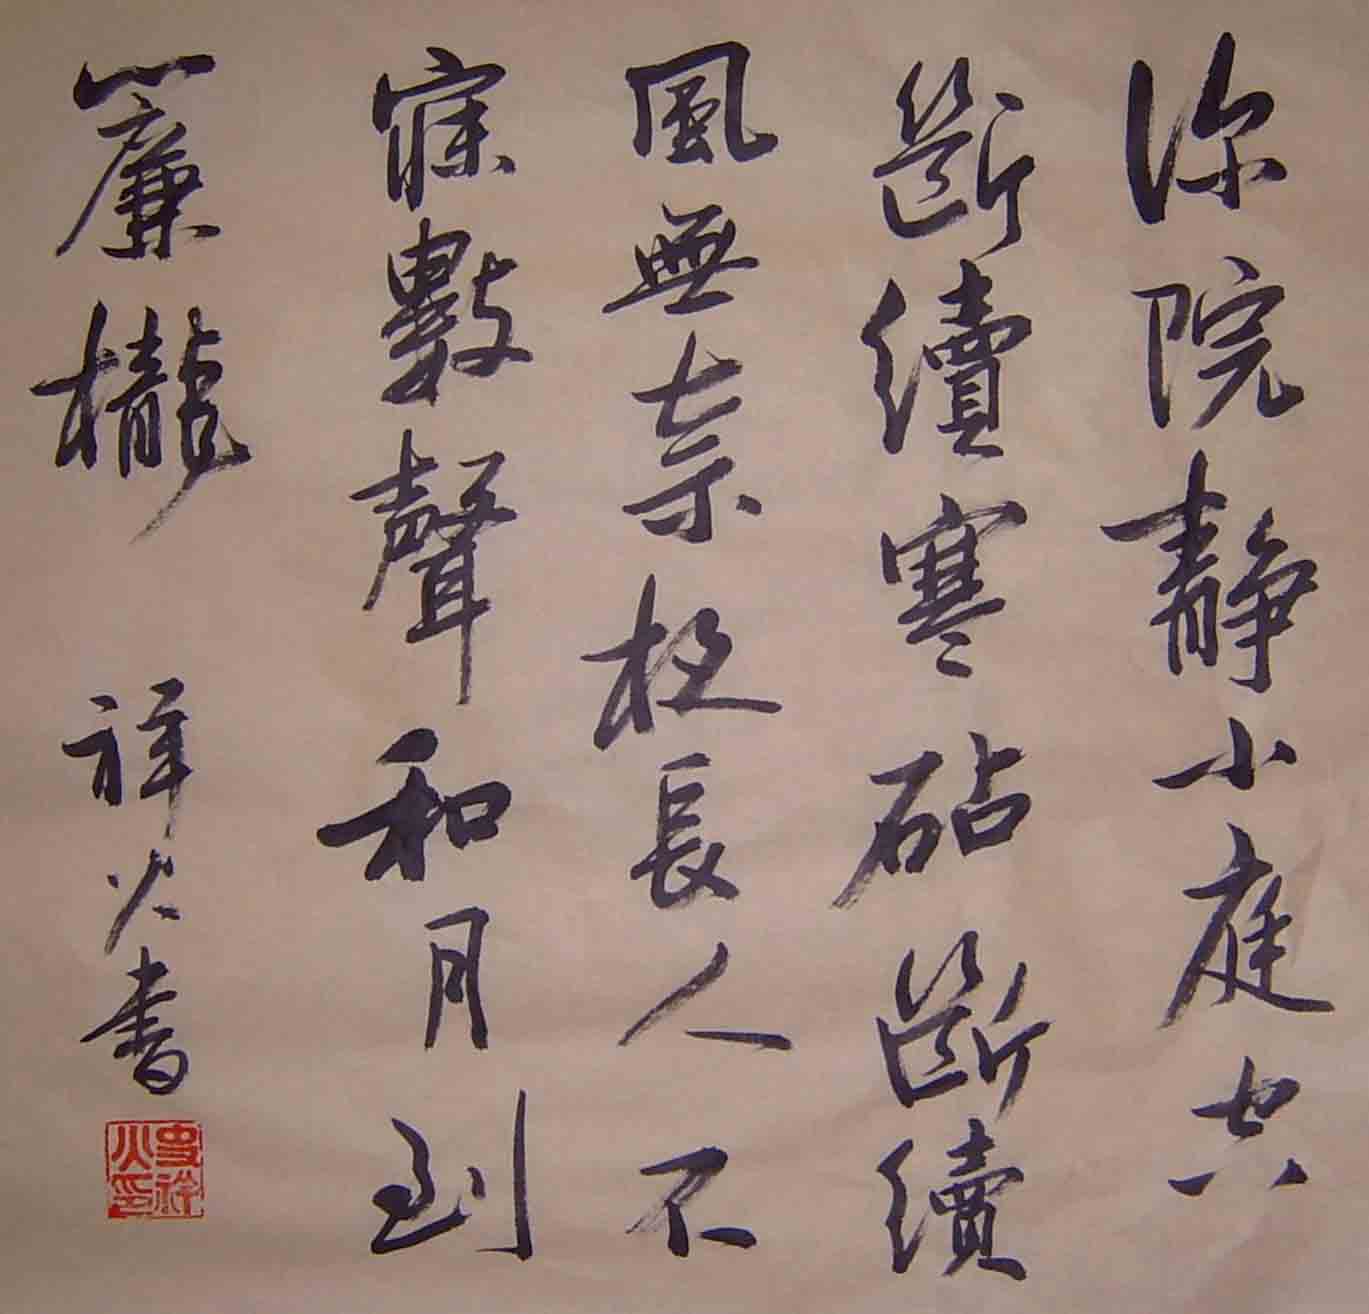 深院靜小庭空
斷續寒砧斷續
風無奈夜長人不
寐數聲和月到
簾櫳
祥火書
史祥火印